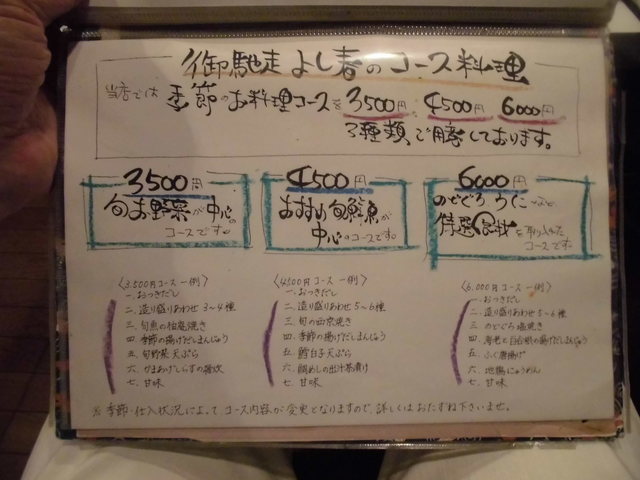 御馳走 よし春のコース料理
当店では 季節のお料理コースを 3500円、4500円 6000円
3種類ご用意しております。
3500円
旬お野菜が中心の
コースです。
4500円
おすすめ旬鮮魚が
中心のコースです。
6000円
のどぐろ うになど、
特選食材を取り入れた
コースです。
〈3.500円コース一例〉
一.おつきだし
二.造り盛りあわせ 3〜4種
三.旬魚の柚庵焼き
四.季節の揚げだしまんじゅう
五.旬野菜天ぷら
六.かまあげしらすの雑炊
七.甘味
〈4500円コース一例〉
一.おつきだし
二.造り盛りあわせ 5〜6種
三.旬の西京焼き
四.季節の揚げだしまんじゅう
五.鱈白子天ぷら
六.鯛めしの出汁茶漬け
七.甘味
〈6.000円コース一例〉
一.おつきだし
二.造り盛りあわせ 5〜6種
三.のどぐろ塩焼き
四.海老と百合根の揚げだしまんじゅう
五.ふぐ唐揚げ
六.地鶏にゅうめん
七.甘味
※季節・仕入状況によって コース内容が変更となりますので、詳しくはおたずね下さいませ。